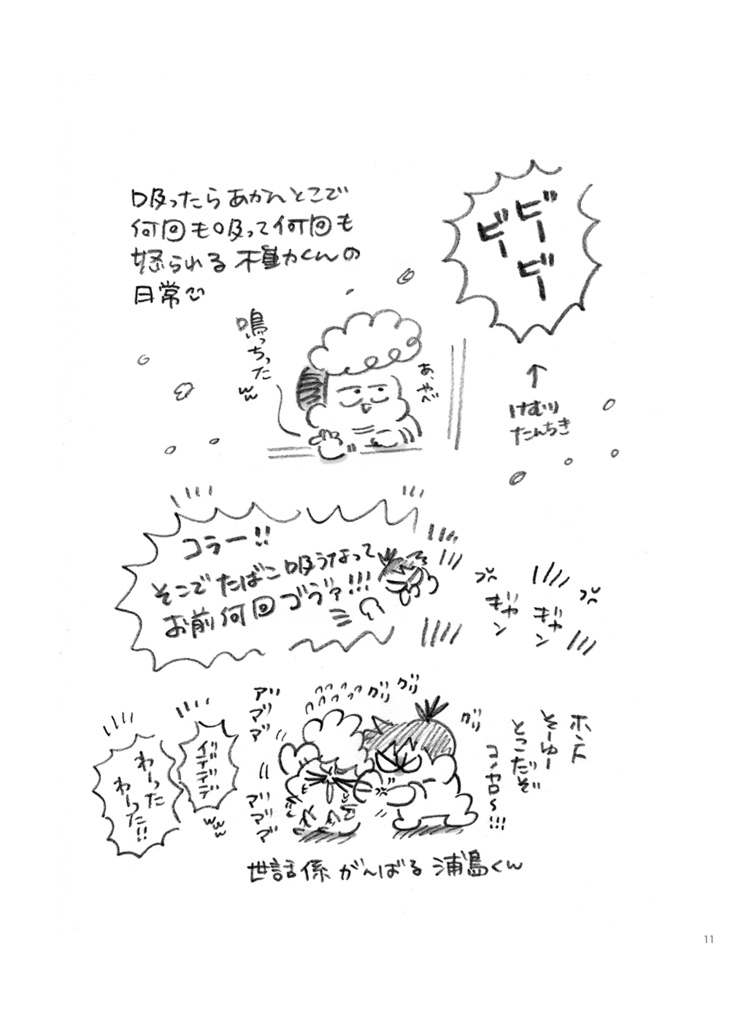 吸ったらあかんとこで
何回も吸って何回も
怒られる種カくんの
日常
ビー
ビー
ビー
↑
けむり
たんちき
鳴っちった
ww
あ、やべ
コラー!!
そこでたばこ吸うなって
お前何回ゴラァ!!!
ギャン
ギャン
ホント
そーゆー
とこだぞ
コノヤロ〜!!!
グリ
グリ
グリ
アバババ
ババババ
イデデデデ
www
わーった
わーった!!
世話係がんばる浦島くん
11